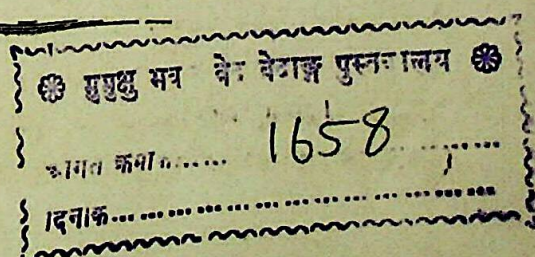 मुमुक्षु भव वेद वेदाङ्ग पुस्तकालय
आगत क्रमांक...... 1658 ......
दिनांक......